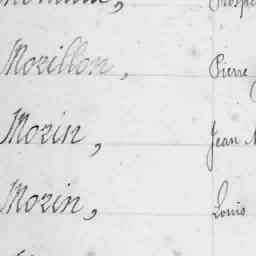 Morillon, Pierre
Morin, Jean
Morin, Louis